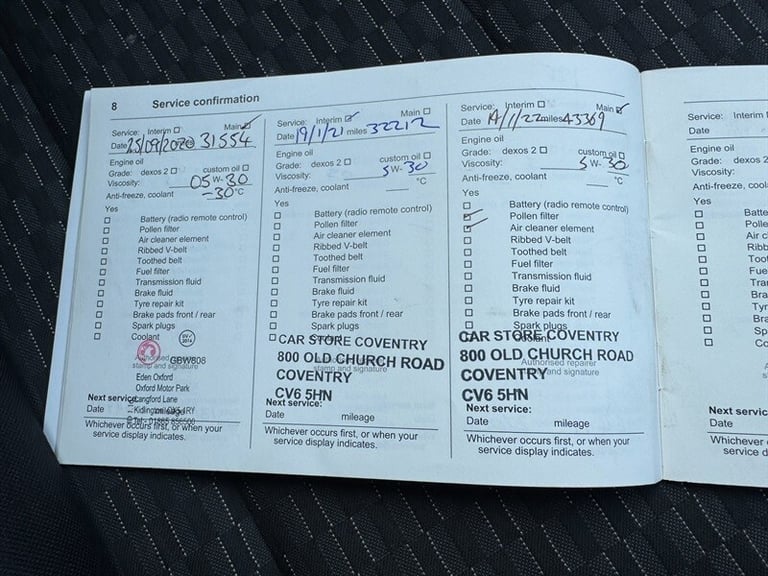 8 Service confirmation
Service: Interim Main
Date 25/09/2020 31554
Engine oil
Grade: dexos 2 custom oil
Viscosity: 05 W- 30
Anti-freeze, coolant -30 °C
Yes
Battery (radio remote control)
Pollen filter
Air cleaner element
Ribbed V-belt
Toothed belt
Fuel filter
Transmission fluid
Brake fluid
Tyre repair kit
Brake pads front / rear
Spark plugs
Coolant
GBW808
stamp and signature
Eden Oxford
Oxford Motor Park
Langford Lane
Next service:
Kidlington OX5 1RY
Date
Whichever occurs first, or when your
service display indicates.
Service: Interim Main
Date 19/1/21 miles 32212
Engine oil
Grade: dexos 2 custom oil
Viscosity: 5 W- 30
Anti-freeze, coolant °C
Yes
Battery (radio remote control)
Pollen filter
Air cleaner element
Ribbed V-belt
Toothed belt
Fuel filter
Transmission fluid
Brake fluid
Tyre repair kit
Brake pads front / rear
Spark plugs
CAR STORE COVENTRY
800 OLD CHURCH ROAD
stamp and signature
COVENTRY
CV6 5HN
Next service:
Date mileage
Whichever occurs first, or when your
service display indicates.
Service: Interim Main
Date miles 43369
Engine oil
Grade: dexos 2 custom oil
Viscosity: 5 W- 30
Anti-freeze, coolant °C
Yes
Battery (radio remote control)
Pollen filter
Air cleaner element
Ribbed V-belt
Toothed belt
Fuel filter
Transmission fluid
Brake fluid
Tyre repair kit
Brake pads front / rear
Spark plugs
CAR STORE COVENTRY
800 OLD CHURCH ROAD
Authorised repairer
stamp and signature
COVENTRY
CV6 5HN
Next service:
Date mileage
Whichever occurs first, or when your
service display indicates.
Service: Interim
Date
Engine oil
Grade: dexos 2
Viscosity:
Anti-freeze,
Yes
Next
Date
Whichever
service